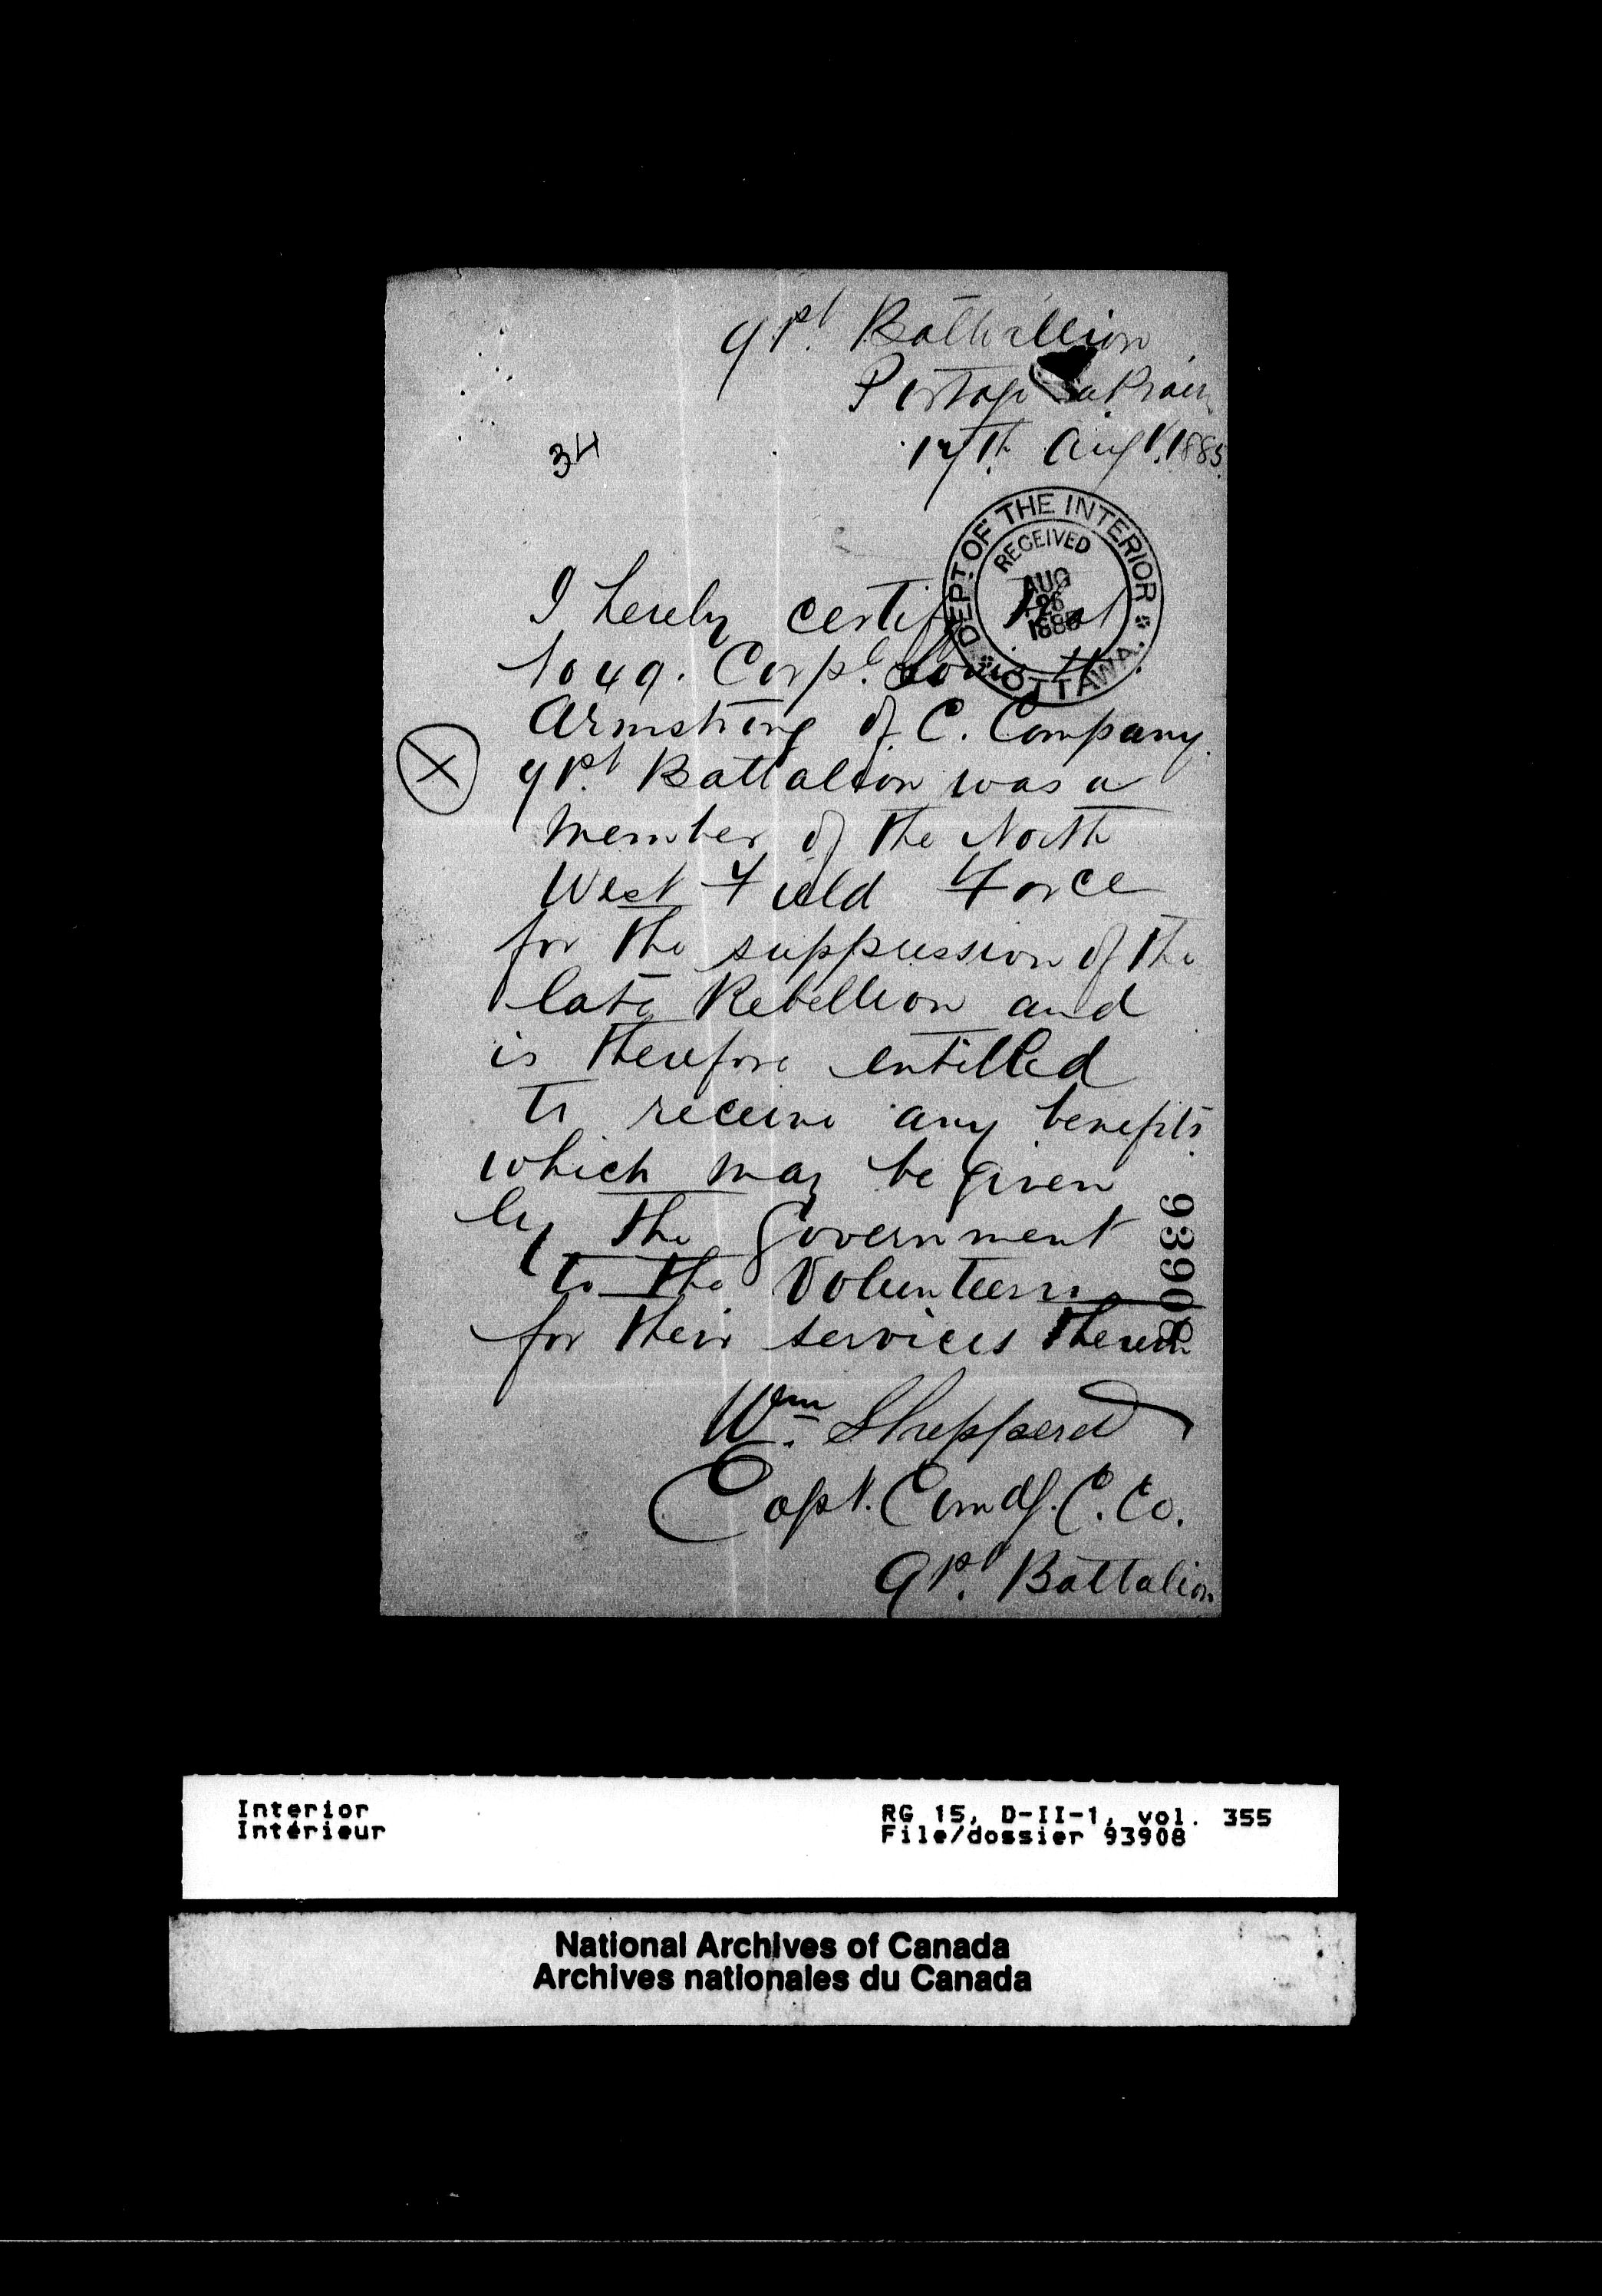 91st Battallion
Portage La Prairie
17th Augt. 1885
34
DEPT OF THE INTERIOR
RECEIVED
AUG
26
1885
OTTAWA.
I hereby certify that
No 49. Corpl. Louis H.
Armstrong of C. Company.
X
91st Battalion was a
member of the North
West Field Force
for the suppression of the
late Rebellion and
is therefore entitled
to receive any benefits
which may be given
by the Government
to the Volunteers
for their services therein
93908
Wm. Shepperd
Capt. Comdg. C. Co.
91st Battalion
Interior
Intérieur
RG 15, D-II-1, vol. 355
File/dossier 93908
National Archives of Canada
Archives nationales du Canada